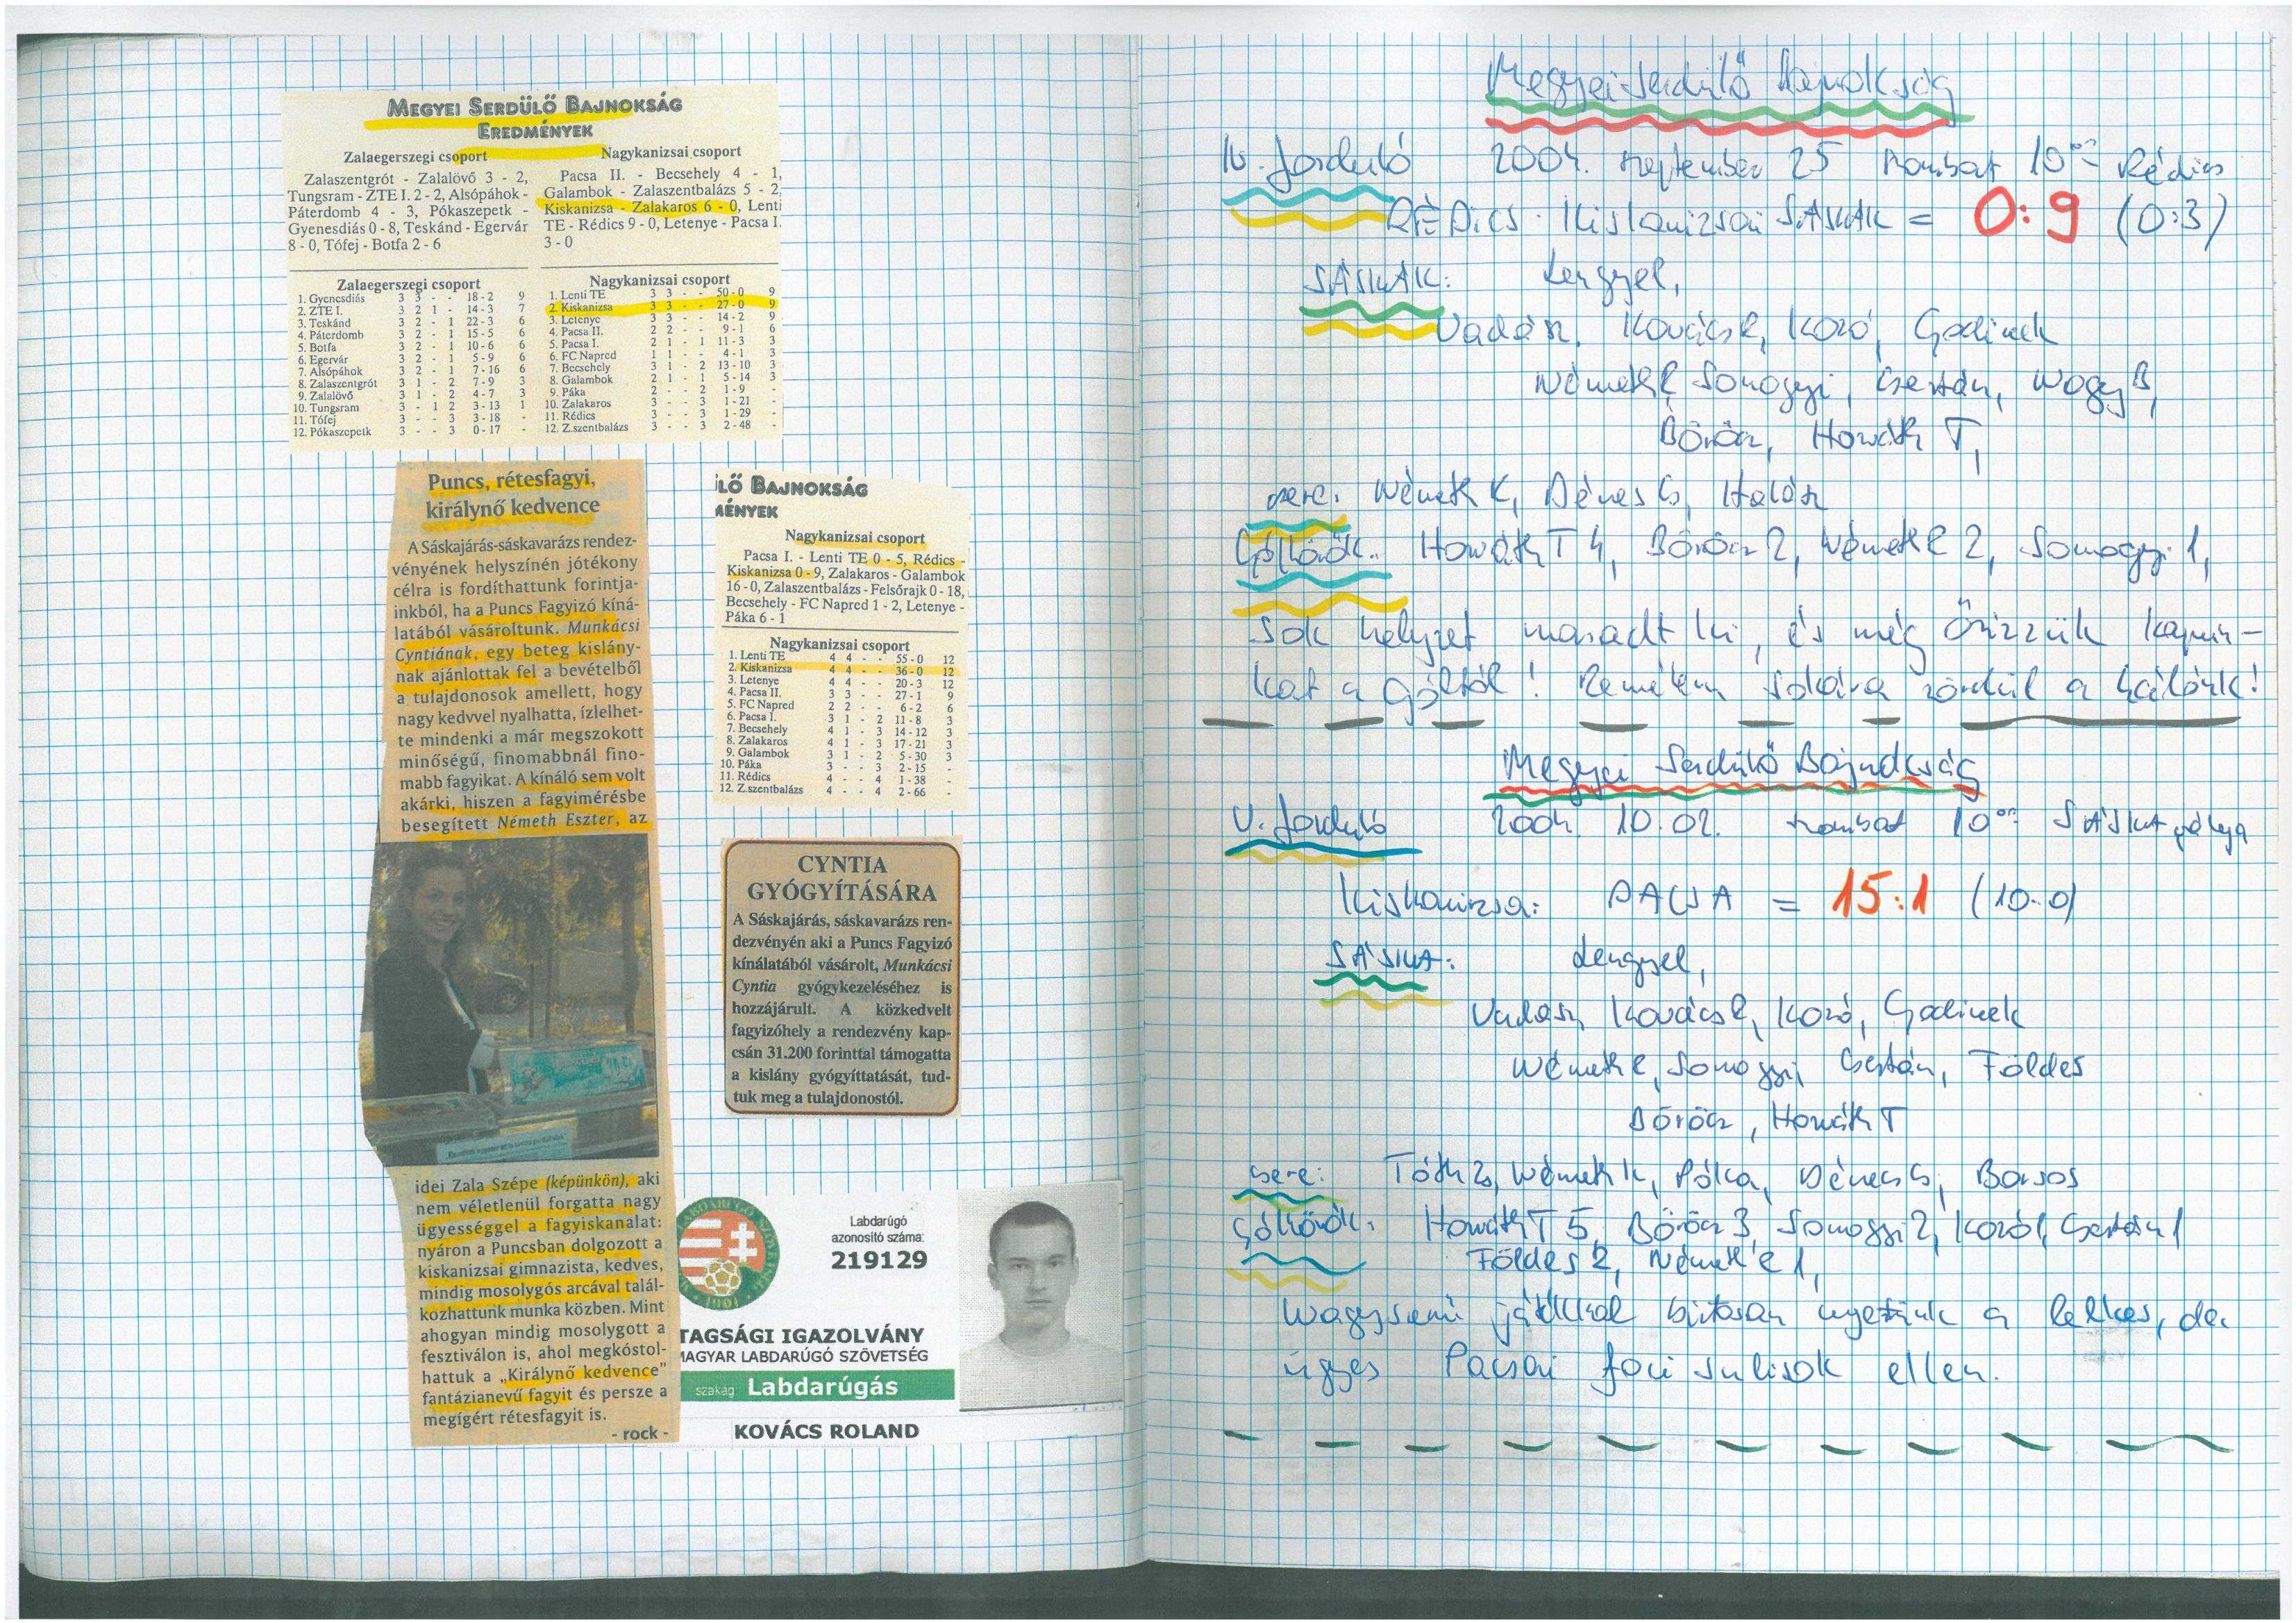 MEGYEI SERDÜLŐ BAJNOKSÁG
EREDMÉNYEK
Zalaegerszegi csoport
Zalaszentgrót - Zalalövő 3 - 2,
Tungsram - ZTE I. 2 - 2, Alsópáhok -
Páterdomb 4 - 3, Pókaszepetk -
Gyenesdiás 0 - 8, Teskánd - Egervár
8 - 0, Tófej - Botfa 2 - 6
Nagykanizsai csoport
Pacsa II. - Becsehely 4 - 1,
Galambok - Zalaszentbalázs 5 - 2,
Kiskanizsa - Zalakaros 6 - 0, Lenti
TE - Rédics 9 - 0, Letenye - Pacsa I.
3 - 0
Zalaegerszegi csoport
1. Gyenesdiás 3 3 - - 18-2 9
2. ZTE I. 3 2 1 - 14-3 7
3. Teskánd 3 2 - 1 22-3 6
4. Páterdomb 3 2 - 1 15-5 6
5. Botfa 3 2 - 1 10-6 6
6. Egervár 3 2 - 1 5-9 6
7. Alsópáhok 3 2 - 1 7-16 6
8. Zalaszentgrót 3 1 - 2 7-9 3
9. Zalalövő 3 1 - 2 4-7 3
10. Tungsram 3 - 1 2 3-13 1
11. Tófej 3 - - 3 3-18 -
12. Pókaszepetk 3 - - 3 0-17 -
Nagykanizsai csoport
1. Lenti TE 3 3 - - 50-0 9
2. Kiskanizsa 3 3 - - 27-0 9
3. Letenye 3 3 - - 14-2 9
4. Pacsa II. 2 2 - - 9-1 6
5. Pacsa I. 2 1 - 1 11-3 3
6. FC Napred 1 1 - - 4-1 3
7. Becsehely 3 1 - 2 13-10 3
8. Galambok 2 1 - 1 5-14 3
9. Páka 2 - - 2 1-9 -
10. Zalakaros 3 - - 3 1-21 -
11. Rédics 3 - - 3 1-29 -
12. Z.szentbalázs 3 - - 3 2-48 -
Puncs, rétesfagyi,
királynő kedvence
A Sáskajárás-sáskavarázs rendez-
vényének helyszínén jótékony
célra is fordíthattunk forintja-
inkból, ha a Puncs Fagyizó kíná-
latából vásároltunk. Munkácsi
Cyntiának, egy beteg kislány-
nak ajánlottak fel a bevételből
a tulajdonosok amellett, hogy
nagy kedvvel nyalhatta, ízlelhet-
te mindenki a már megszokott
minőségű, finomabbnál fino-
mabb fagyikat. A kínáló sem volt
akárki, hiszen a fagyimérésbe
besegített Németh Eszter, az
idei Zala Szépe (képünkön), aki
nem véletlenül forgatta nagy
ügyességgel a fagyiskanalat:
nyáron a Puncsban dolgozott a
kiskanizsai gimnazista, kedves,
mindig mosolygós arcával talál-
kozhattunk munka közben. Mint
ahogyan mindig mosolygott a
fesztiválon is, ahol megkóstol-
hattuk a „Királynő kedvence”
fantázianevű fagyit és persze a
megígért rétesfagyit is.
- rock -
LŐ BAJNOKSÁG
MÉNYEK
Nagykanizsai csoport
Pacsa I. - Lenti TE 0 - 5, Rédics -
Kiskanizsa 0 - 9, Zalakaros - Galambok
16 - 0, Zalaszentbalázs - Felsőrajk 0 - 18,
Becsehely - FC Napred 1 - 2, Letenye -
Páka 6 - 1
Nagykanizsai csoport
1. Lenti TE 4 4 - - 55-0 12
2. Kiskanizsa 4 4 - - 36-0 12
3. Letenye 4 4 - - 20-3 12
4. Pacsa II. 3 3 - - 27-1 9
5. FC Napred 2 2 - - 6-2 6
6. Pacsa I. 3 1 - 2 11-8 3
7. Becsehely 4 1 - 3 14-12 3
8. Zalakaros 4 1 - 3 17-21 3
9. Galambok 3 1 - 2 5-30 3
10. Páka 3 - - 3 2-15 -
11. Rédics 4 - - 4 1-38 -
12. Z.szentbalázs 4 - - 4 2-66 -
CYNTIA
GYÓGYÍTÁSÁRA
A Sáskajárás, sáskavarázs ren-
dezvényén aki a Puncs Fagyizó
kínálatából vásárolt, Munkácsi
Cyntia gyógykezeléséhez is
hozzájárult. A közkedvelt
fagyizóhely a rendezvény kap-
csán 31.200 forinttal támogatta
a kislány gyógyíttatását, tud-
tuk meg a tulajdonostól.
Labdarúgó
azonosító száma:
219129
TAGSÁGI IGAZOLVÁNY
MAGYAR LABDARÚGÓ SZÖVETSÉG
szakág: Labdarúgás
KOVÁCS ROLAND
Megyei Serdülő Bajnokság
IV. forduló 2004. szeptember 25 szombat 10⁰⁰ Rédics
RÉDICS : Kiskanizsai SÁSKÁK = 0:9 (0:3)
SÁSKÁK: Lengyel,
Vadász, Kovács R, Kozó, Godinek
Németh E, Somogyi, Csertán, Nagy B,
Böröcz, Horváth T,
csere: Németh K, Dénes G, Halász
Góllövők: Horváth T 4, Böröcz 2, Németh E 2, Somogyi 1,
Sok helyzet maradt ki, és még őrizzük kapun-
kat a góltól! Remélem sokára zördül a hálónk!
Megyei Serdülő Bajnokság
V. forduló 2004. 10. 02. szombat 10⁰⁰ SÁSKA pálya
Kiskanizsa: PACSA = 15:1 (10:0)
SÁSKA: Lengyel,
Vadász, Kovács R, Kozó, Godinek
Németh E, Somogyi, Csertán, Földes
Böröcz, Horváth T
csere: Tóth Zs, Németh K, Pólka, Dénes G, Borsos
Góllövők: Horváth T 5, Böröcz 3, Somogyi 2, Kozó 1, Csertán 1
Földes 2, Németh E 1,
Nagyszerű játékkal biztosan nyertünk a lelkes, de
ügyes Pacsai foci sulisok ellen.